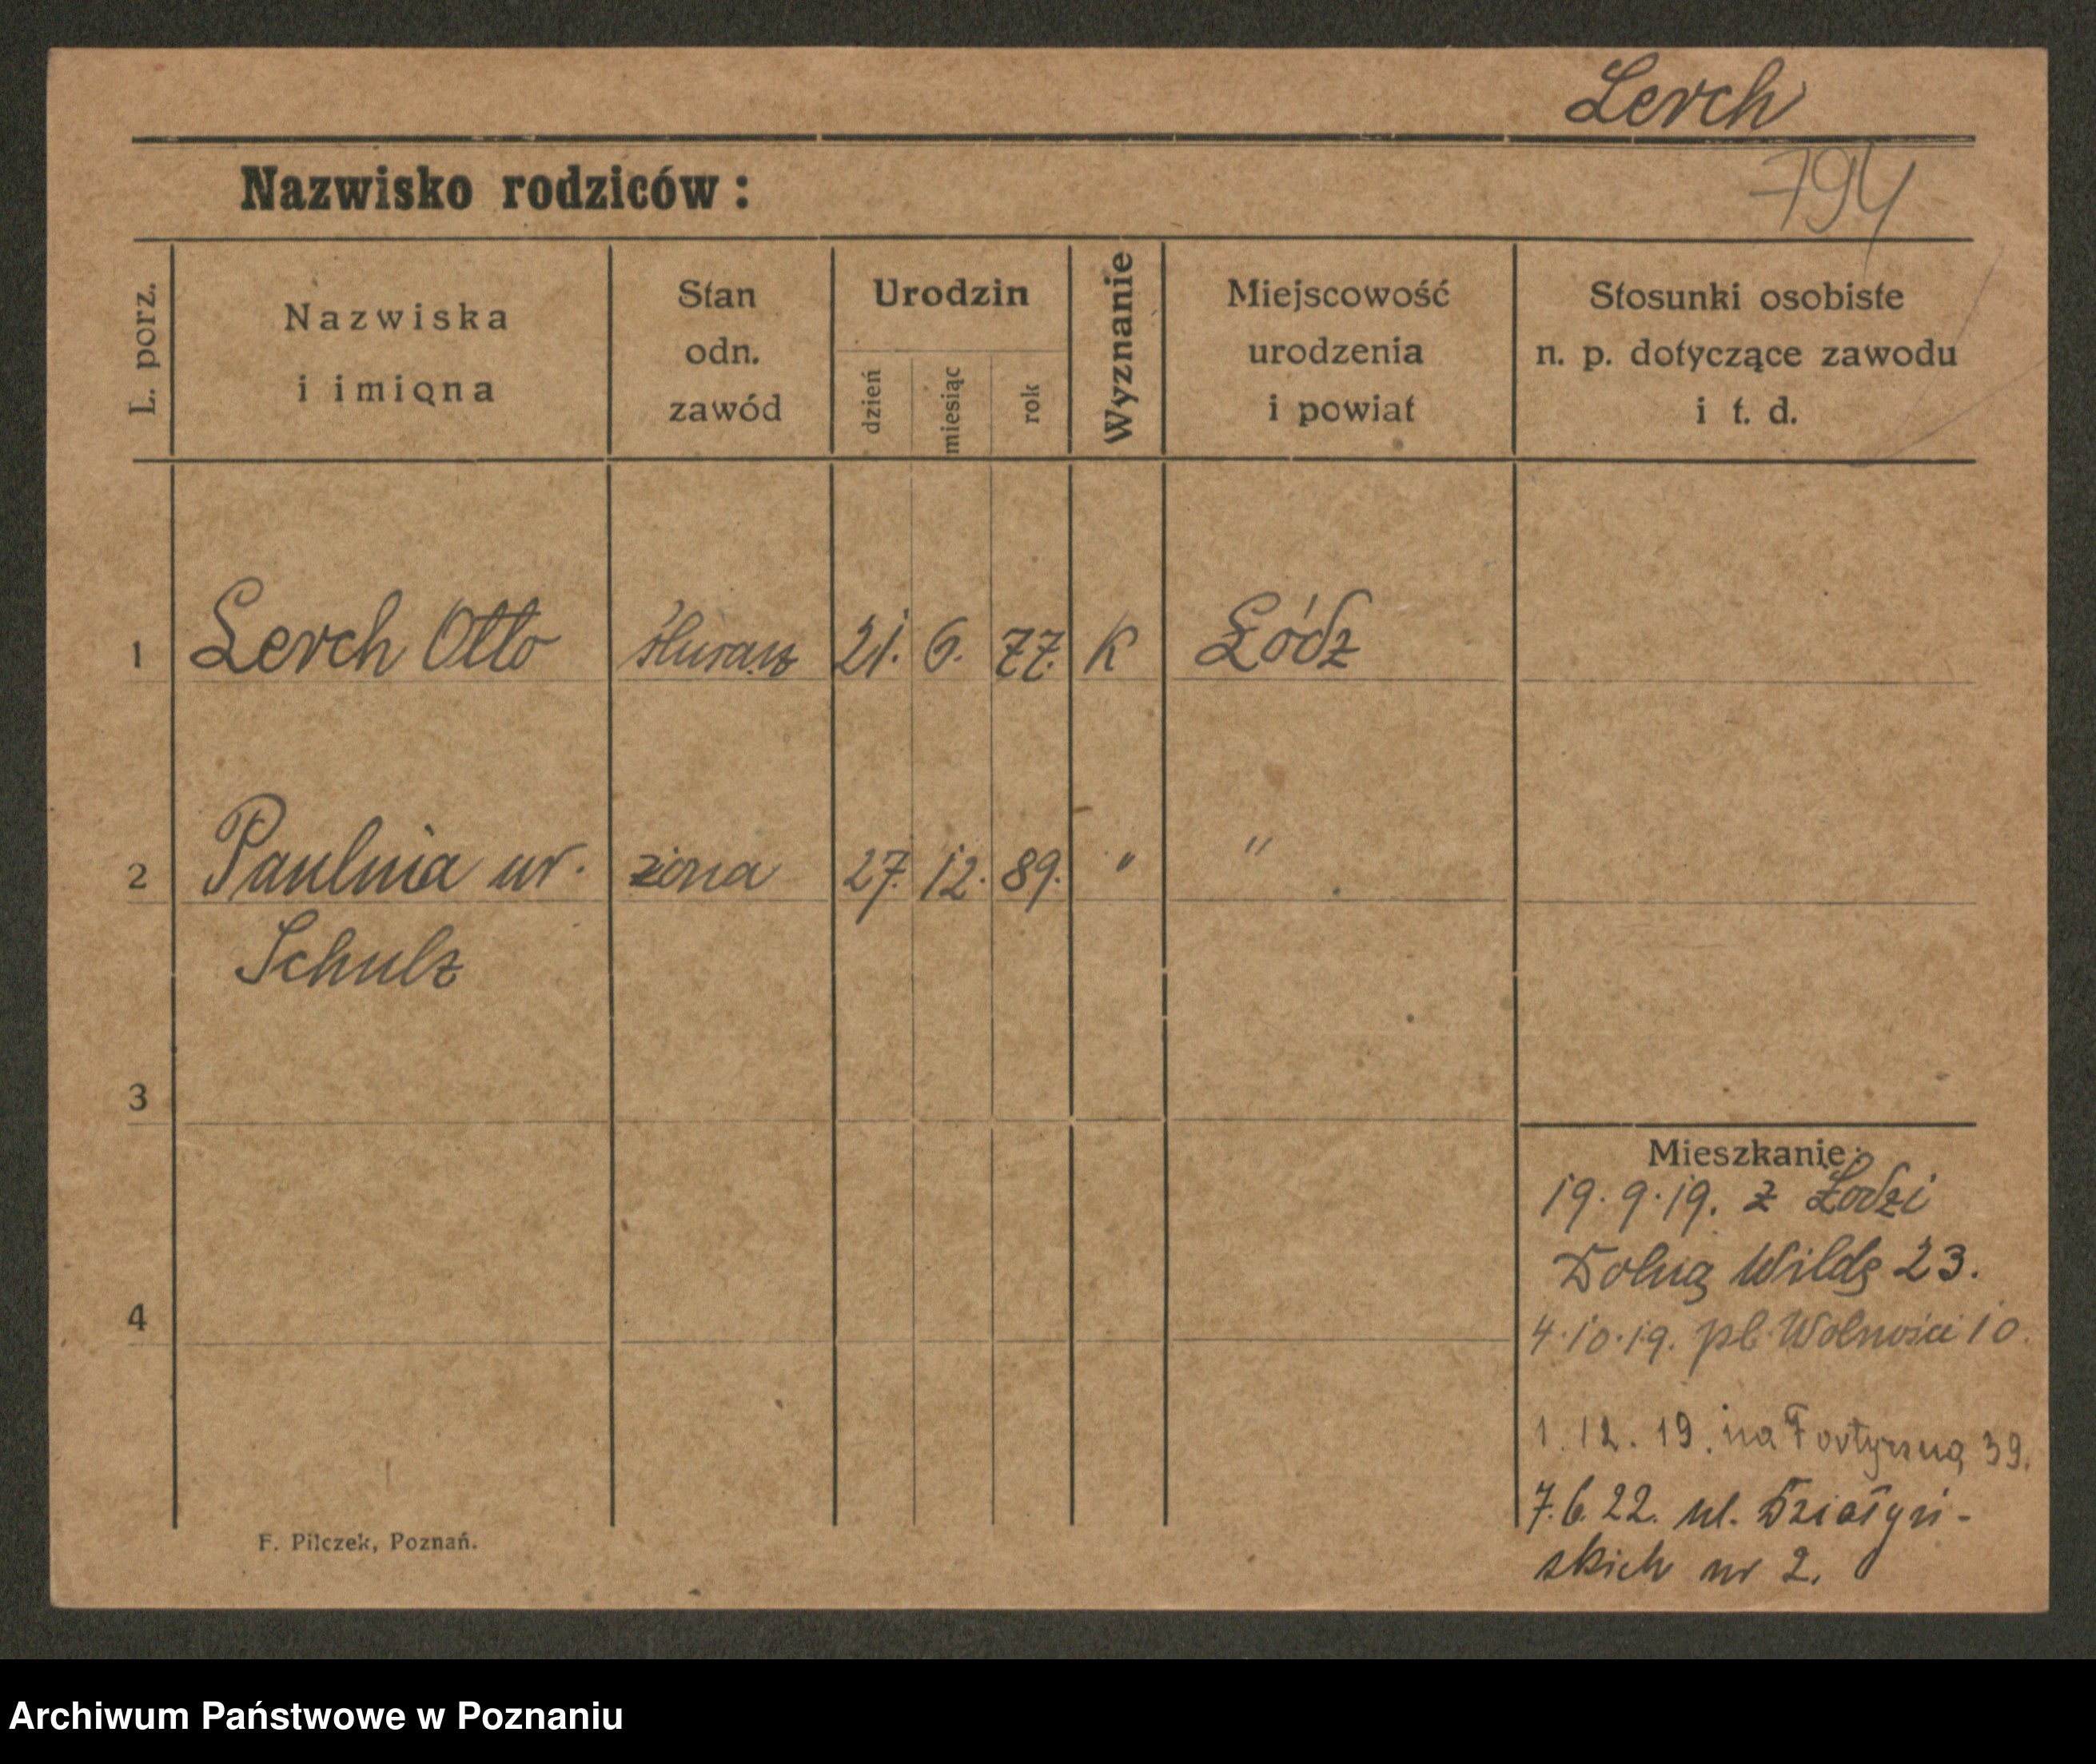 Lerch
794
Nazwisko rodziców:
L. porz.
Nazwiska
i imiona
Stan
odn.
zawód
Urodzin
dzień
miesiąc
rok
Wyznanie
Miejscowość
urodzenia
i powiat
Stosunki osobiste
n. p. dotyczące zawodu
i t. d.
1 Lerch Otto ślusarz 21. 6. 77. K Łódz
2 Paulina ur. żona 27. 12. 89. " "
Schulz
3
4
Mieszkanie:
19.9.19. z Łodzi
Dolną Wildę 23.
4.10.19. pl. Wolności 10.
1.12.19. na Fortyczną 39.
7.6.22. ul. Działyń-
skich nr 2.
F. Pilczek, Poznań.
Archiwum Państwowe w Poznaniu